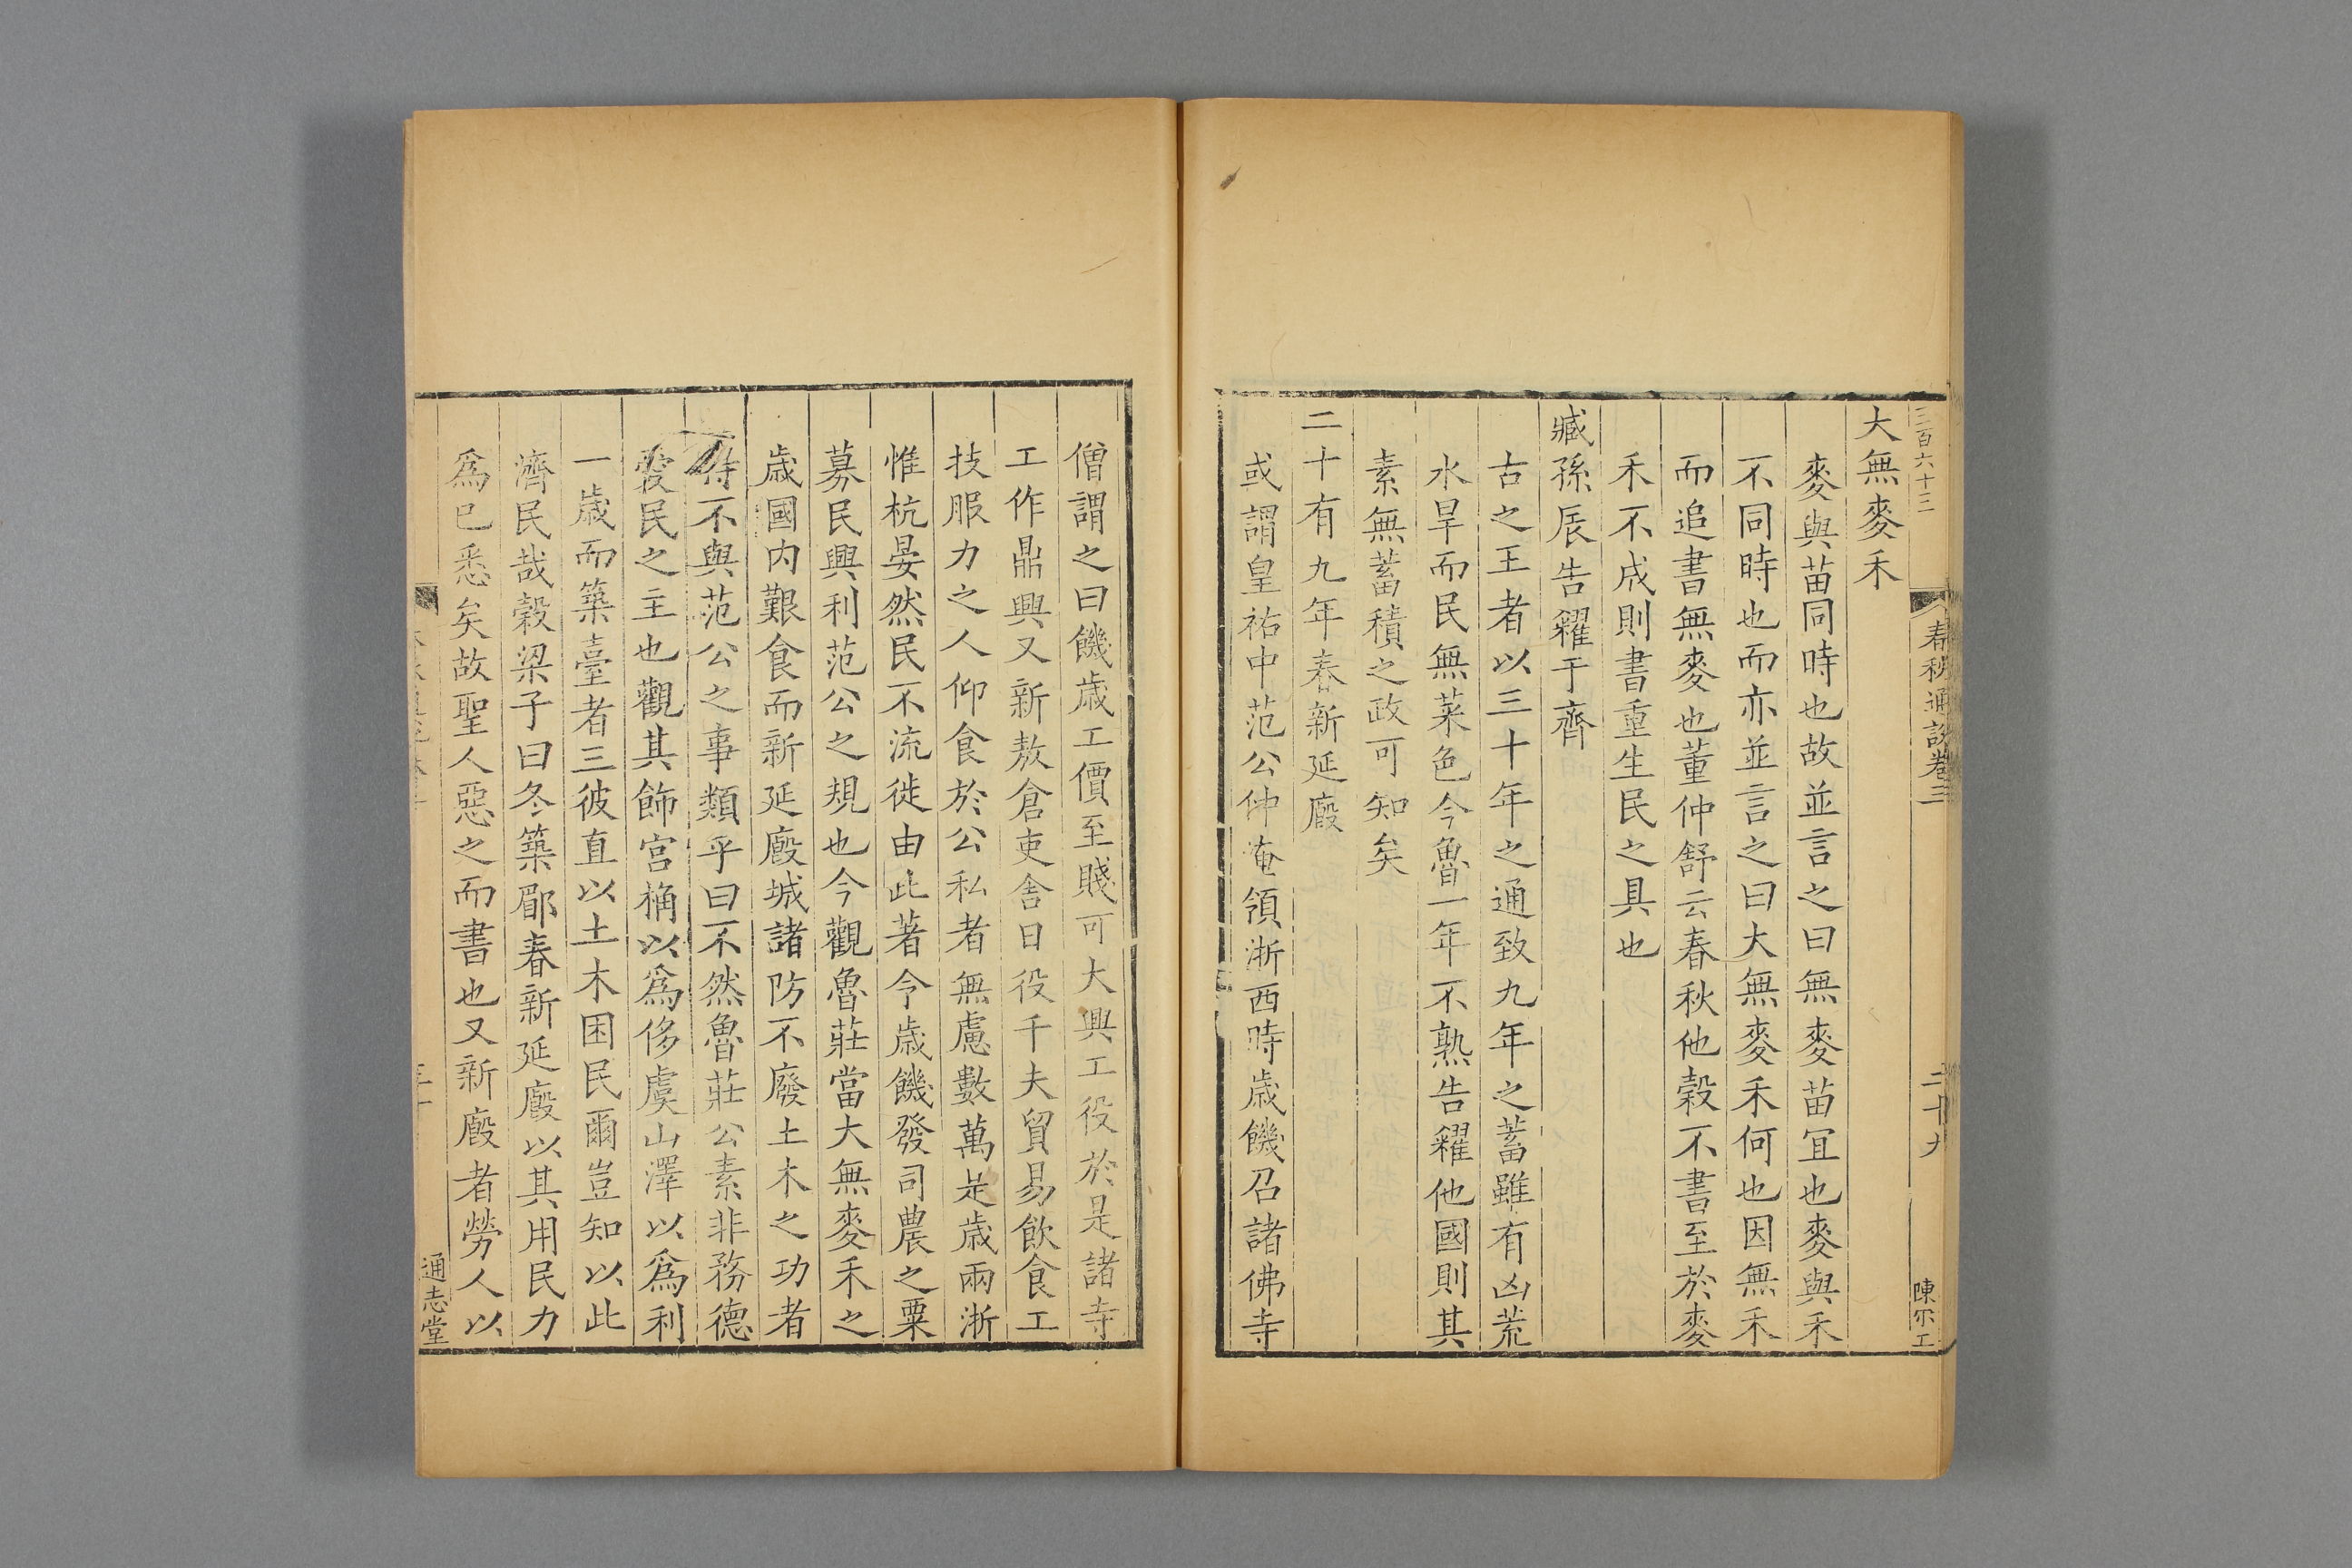 三百六十三
春秋通說卷三
二十九
陳尔工
大無麥禾
麥與苗同時也故並言之曰無麥苗宜也麥與禾
不同時也而亦並言之曰大無麥禾何也因無禾
而追書無麥也董仲舒云春秋他穀不書至於麥
禾不成則書重生民之具也
臧孫辰告糴于齊
古之王者以三十年之通致九年之蓄雖有凶荒
水旱而民無菜色今魯一年不熟告糴他國則其
素無蓄積之政可知矣
二十有九年春新延廄
或謂皇祐中范公仲淹領浙西時歲饑召諸佛寺
僧謂之曰饑歲工價至賤可大興工役於是諸寺
工作鼎興又新敖倉吏舍日役千夫貿易飲食工
技服力之人仰食於公私者無慮數萬是歲兩浙
惟杭晏然民不流徙由此著令歲饑發司農之粟
募民興利范公之規也今觀魯莊當大無麥禾之
歲國內艱食而新延廄城諸防不廢土木之功者
得不與范公之事類乎曰不然魯莊公素非務德
愛民之主也觀其飾宮桷以爲侈虞山澤以爲利
一歲而築臺者三彼直以土木困民爾豈知以此
濟民哉穀梁子曰冬築郿春新延廄以其用民力
爲已悉矣故聖人惡之而書也又新廄者勞人以
通志堂